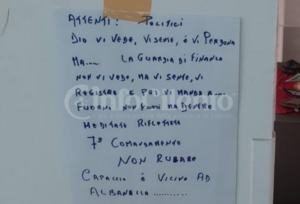 ATTENTI: POLITICI
DIO VI VEDE, VI SENTE, E VI PERDONA
MA.... LA GUARDIA DI FINANZA
NON VI VEDE, MA VI SENTE, VI
REGISTRA E POI VI MANDA A....
MEDITATE RIFLETTETE
7° COMANDAMENTO
NON RUBARE
CAPACCIO É VICINO AD
ALBANELLA...........